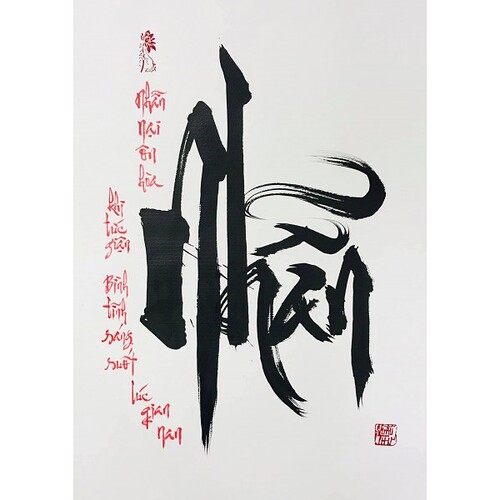 Nhẫn
Nhẫn nại ôn hòa
khi tức giận
Bình tĩnh sáng suốt
lúc gian nan